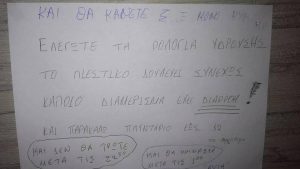 ΚΑΙ ΘΑ ΚΑΘΕΤΕ
ΕΛΕΓΞΤΕ ΤΑ ΡΟΛΟΓΙΑ ΥΔΡΕΥΣΗΣ
ΤΟ ΠΙΕΣΤΙΚΟ ΔΟΥΛΕΥΕΙ ΣΥΝΕΧΩΣ
ΚΑΠΟΙΟ ΔΙΑΜΕΡΙΣΜΑ ΕΧΕΙ ΔΙΑΡΡΟΗ!
ΚΑΙ ΠΑΡΑΚΑΛΩ ΠΛΥΝΤΗΡΙΟ ΕΩΣ
ΚΑΙ ΔΕΝ ΘΑ ΤΡΩΤΕ
ΜΕΤΑ ΤΙΣ
ΚΑΙ ΘΑ
ΜΕΤΑ ΤΙΣ